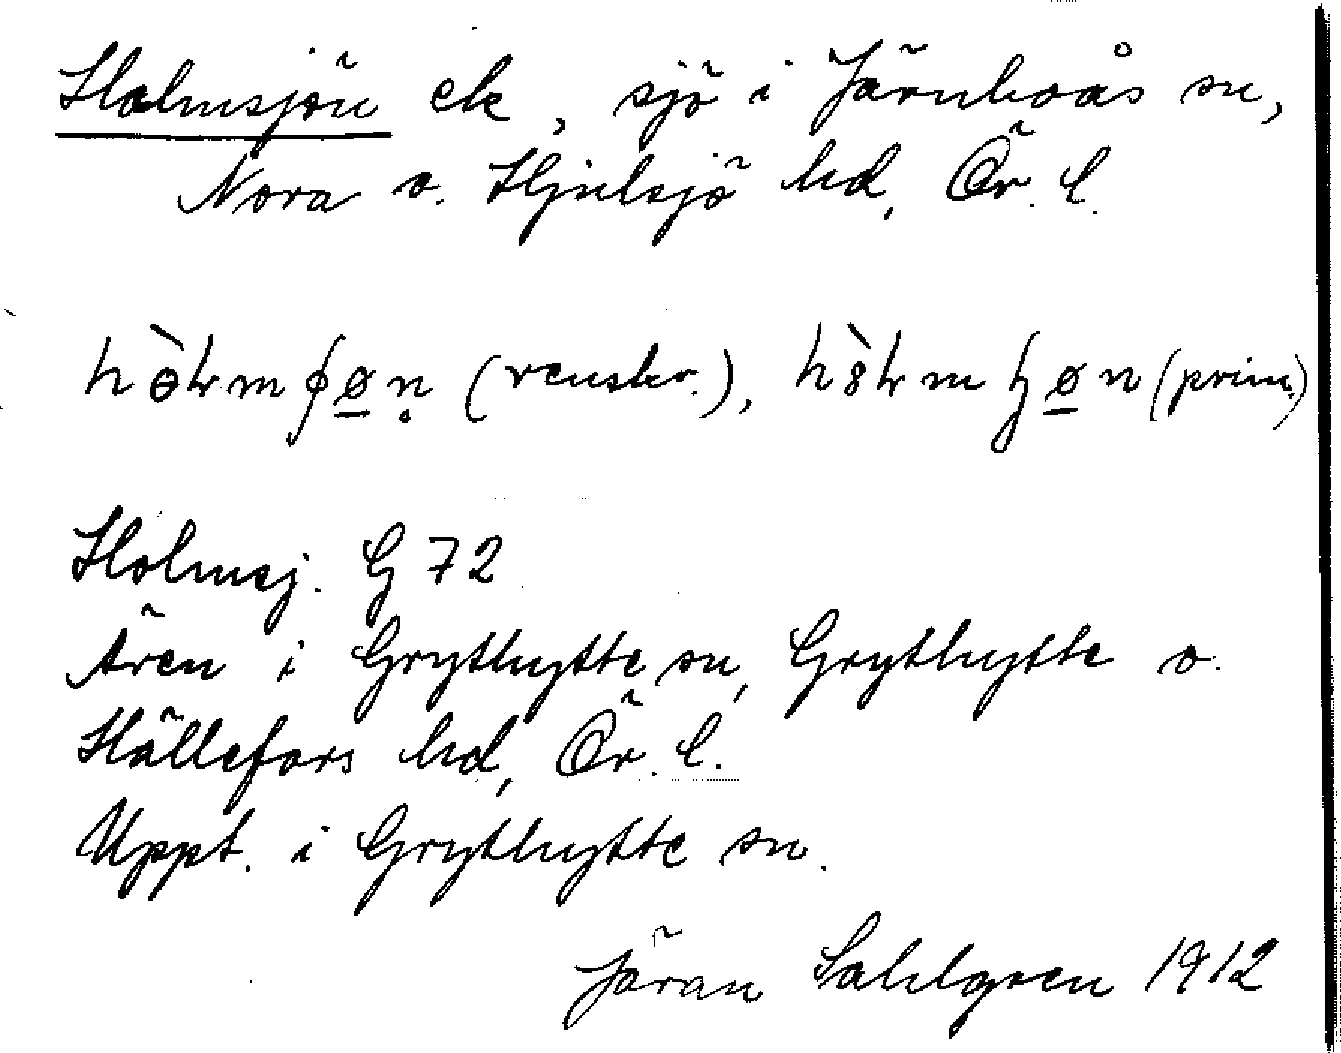 Holmsjön ek, sjö i Järnboås sn,
Nora o. Hjulsjö hd, Ör. l.
(renskr.), (prim.)
Holmsj. G 72
Ären i Grythytte sn, Grythytte o.
Hällefors hd, Ör. l.
Uppt. i Grythytte sn.
Jöran Sahlgren 1912